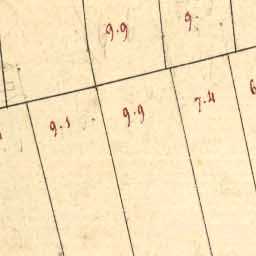 9.9 9.
9.1 9.9 7.4 6